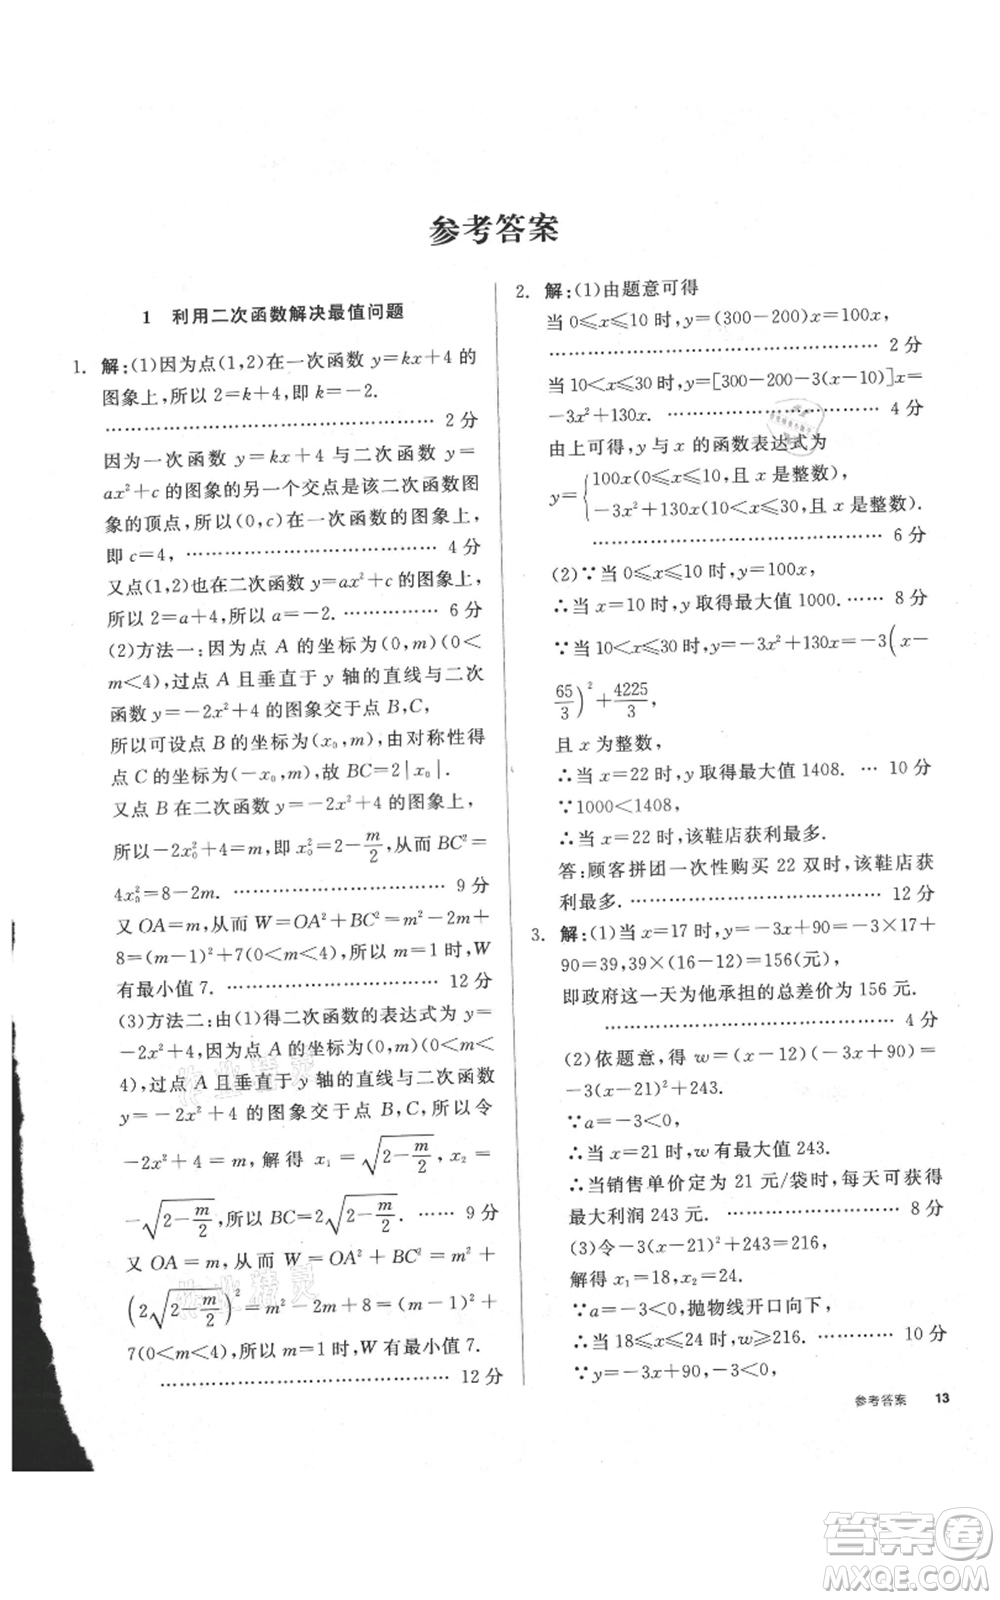 参考答案
1 利用二次函数解决最值问题
1. 解:(1)因为点(1,2)在一次函数 y=kx+4 的
图象上,所以 2=k+4,即 k=-2.
…………………………………… 2 分
因为一次函数 y=kx+4 与二次函数 y=
ax²+c 的图象的另一个交点是该二次函数图
象的顶点,所以(0,c)在一次函数的图象上,
即 c=4, …………………………… 4 分
又点(1,2)也在二次函数 y=ax²+4 的图象上,
所以 2=a+4,所以 a=-2. …………… 6 分
(2)方法一:因为点 A 的坐标为(0,m)(0<
m<4),过点 A 且垂直于 y 轴的直线与二次
函数 y=-2x²+4 的图象交于点 B,C,
所以可设点 B 的坐标为(x₀,m),由对称性得
点 C 的坐标为(-x₀,m),故 BC=2|x₀|.
又点 B 在二次函数 y=-2x²+4 的图象上,
所以-2x₀²+4=m,即 x₀²=2-m/2,从而 BC²=
4x₀²=8-2m. ………………………… 9 分
又 OA=m,从而 W=OA²+BC²=m²-2m+
8=(m-1)²+7(0<m<4),所以 m=1 时,W
有最小值 7. ………………………… 12 分
(3)方法二:由(1)得二次函数的表达式为 y=
-2x²+4,因为点 A 的坐标为(0,m)(0<m<
4),过点 A 且垂直于 y 轴的直线与二次函数
y=-2x²+4 的图象交于点 B,C,所以令
-2x²+4=m,解得 x₁=√(2-m/2),x₂=
-√(2-m/2),所以 BC=2√(2-m/2). …… 9 分
又 OA=m,从而 W=OA²+BC²=m²+
(2√(2-m/2))²=m²-2m+8=(m-1)²+
7(0<m<4),所以 m=1 时,W 有最小值 7.
…………………………………… 12 分
2. 解:(1)由题意可得
当 0≤x≤10 时,y=(300-200)x=100x,
…………………………………… 2 分
当 10<x≤30 时,y=[300-200-3(x-10)]x=
-3x²+130x. ………………………… 4 分
由上可得,y 与 x 的函数表达式为
y={100x(0≤x≤10,且 x 是整数),
-3x²+130x(10<x≤30,且 x 是整数).
…………………………………… 6 分
(2)∵当 0≤x≤10 时,y=100x,
∴当 x=10 时,y 取得最大值 1000. …… 8 分
∵当 10<x≤30 时,y=-3x²+130x=-3(x-
65/3)²+4225/3,
且 x 为整数,
∴当 x=22 时,y 取得最大值 1408. … 10 分
∵1000<1408,
∴当 x=22 时,该鞋店获利最多.
答:顾客拼团一次性购买 22 双时,该鞋店获
利最多. …………………………… 12 分
3. 解:(1)当 x=17 时,y=-3x+90=-3×17+
90=39,39×(16-12)=156(元),
即政府这一天为他承担的总差价为 156 元.
…………………………………… 4 分
(2)依题意,得 w=(x-12)(-3x+90)=
-3(x-21)²+243.
∵a=-3<0,
∴当 x=21 时,w 有最大值 243.
∴当销售单价定为 21 元/袋时,每天可获得
最大利润 243 元. …………………… 8 分
(3)令-3(x-21)²+243=216,
解得 x₁=18,x₂=24.
∵a=-3<0,抛物线开口向下,
∴当 18≤x≤24 时,w≥216. ………… 10 分
∵y=-3x+90,-3<0,
参考答案 13
作业精灵
作业精灵
答案卷
MXQE.COM